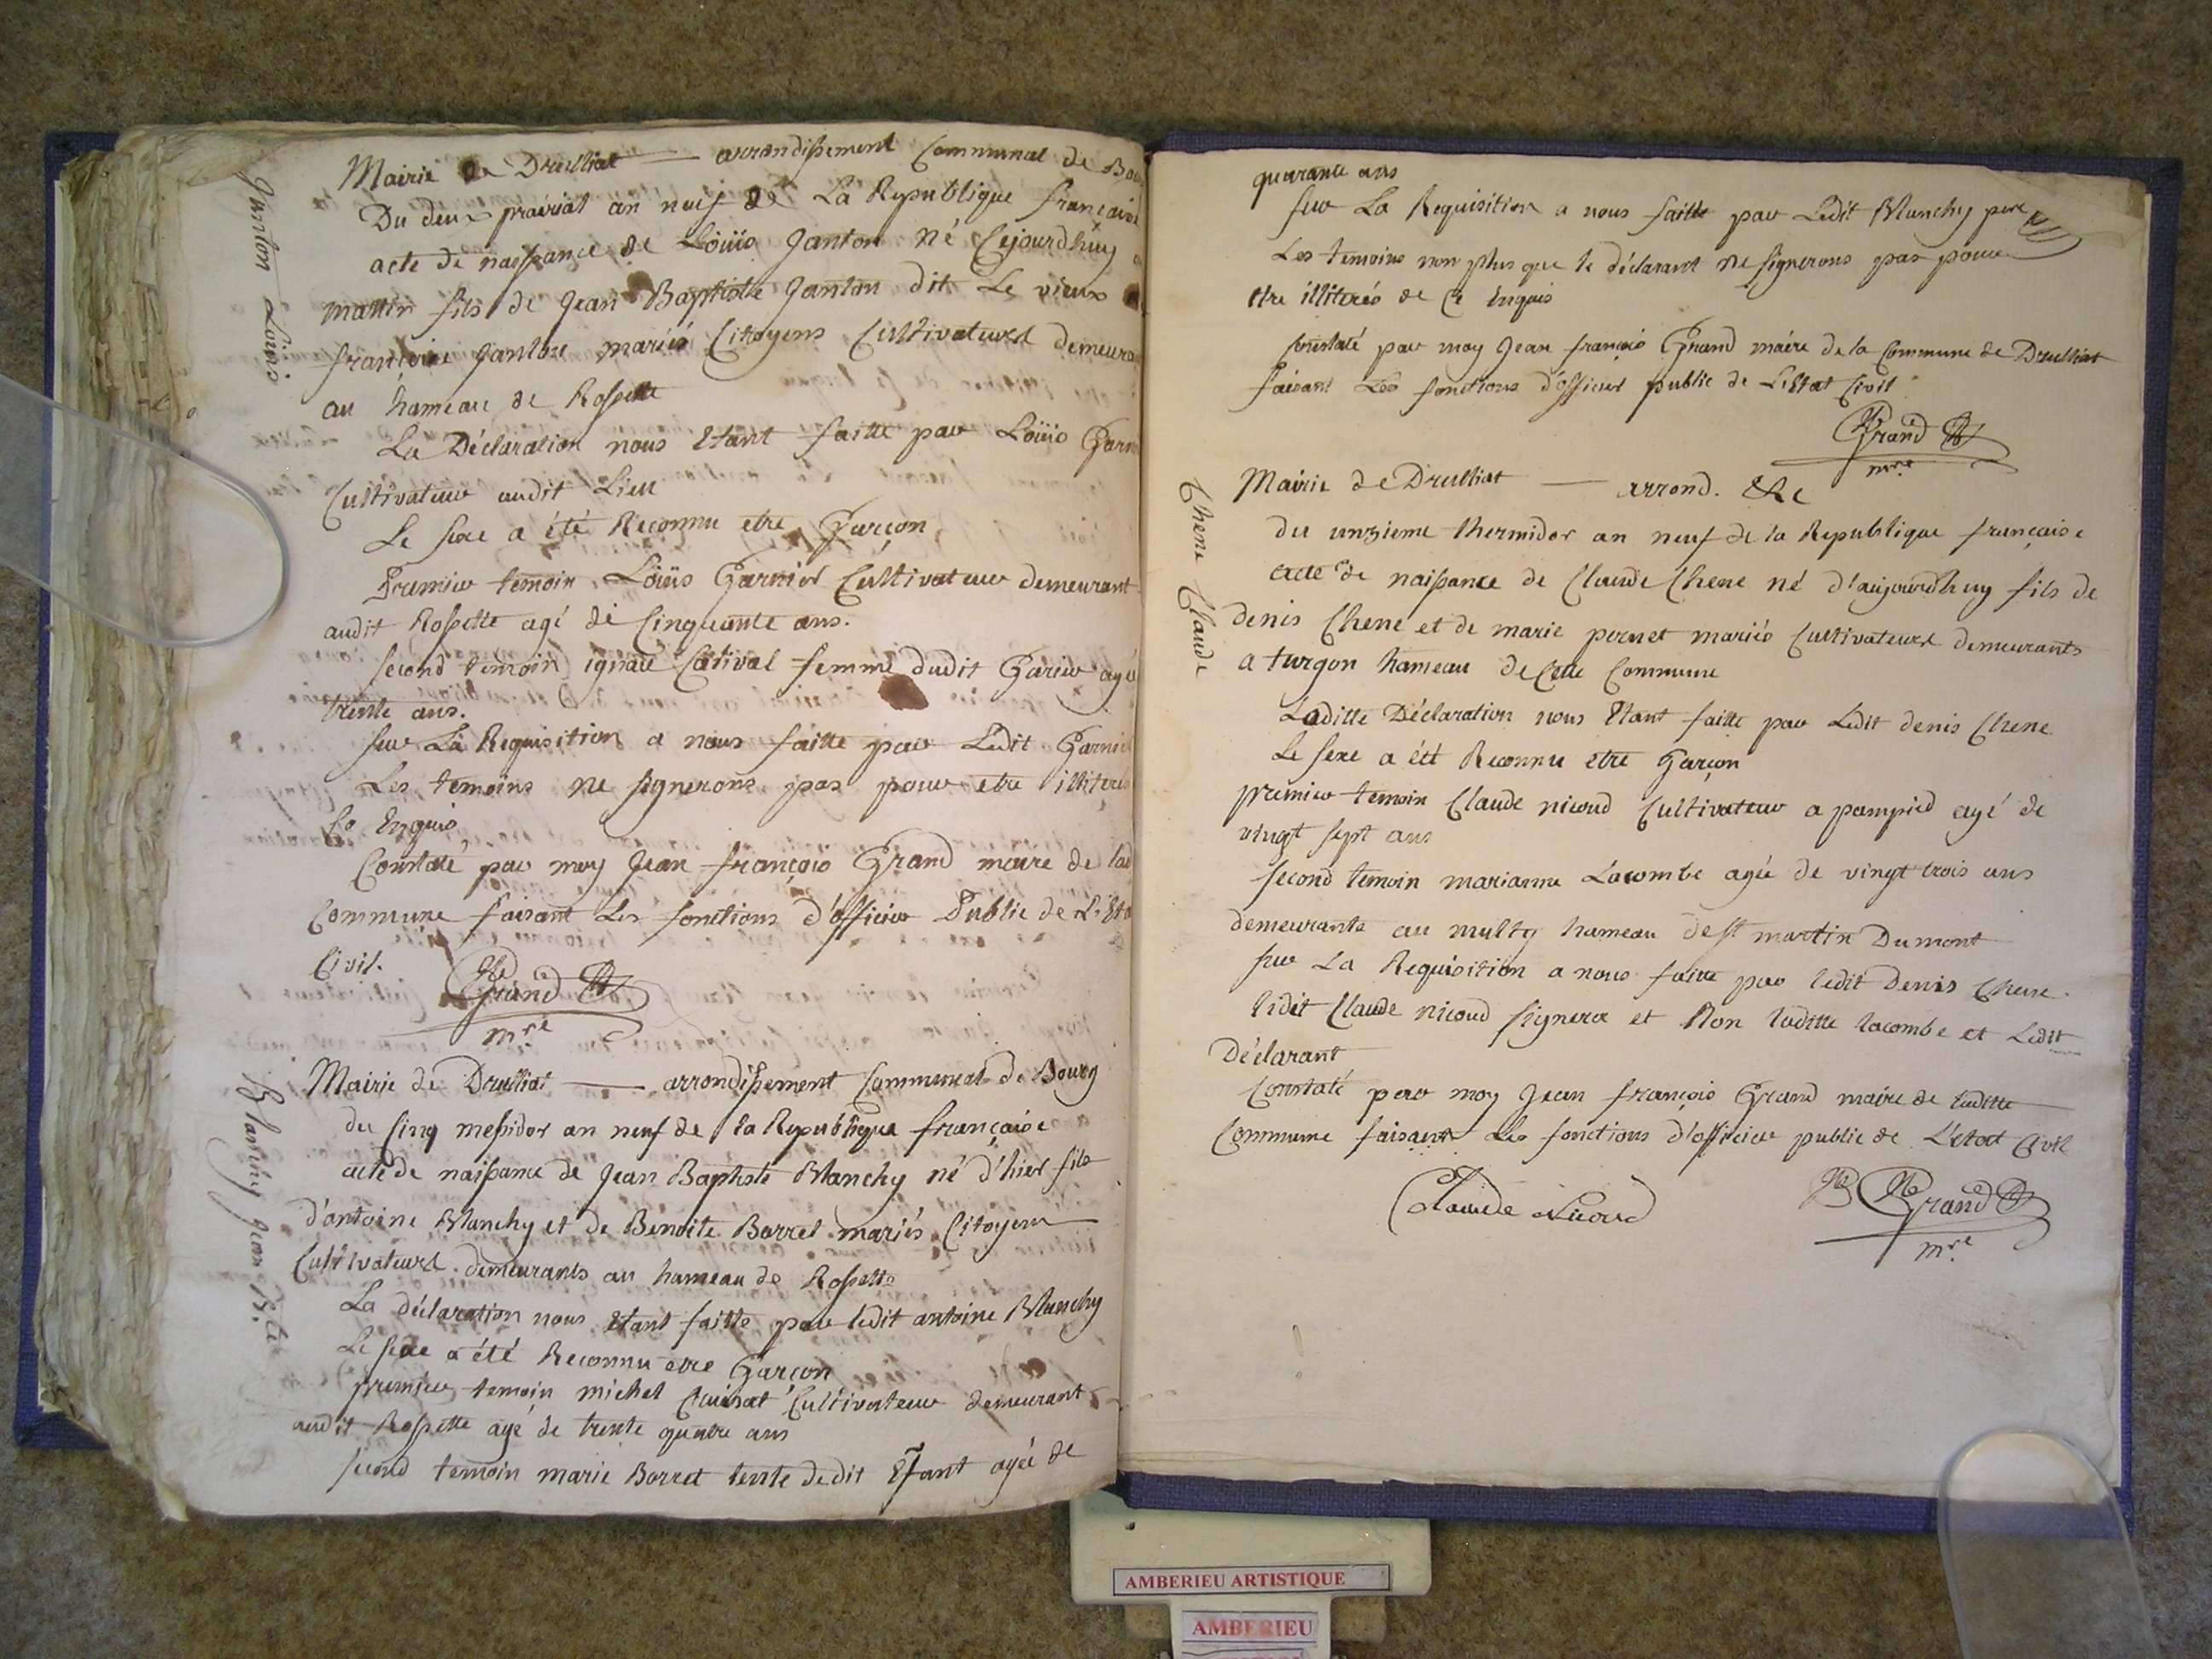 Janton Loüis
Mairie de Druilliat — arrondissement Communal de Bou
Du deux prairial an neuf de La Republique francaise
acte de naissance de Loüis Janton né Cejourdhuy
mattin fils de Jean Baptiste Janton dit Le vieux
françoise Jantone mariés Citoyens Cultivateurs demeura
au hameau de Rossette
La Déclaration nous Etant faitte par Loüis Garn
Cultivateur audit Lieu
Le sexe a été Reconnu etre Garçon
Premier temoin Loüis Garnier Cultivateur demeurant
audit Rossette agé de Cinquante ans.
second temoin femme dudit Garier agé
trente ans.
sur La Requisition a nous faitte par Ledit Garnie
Les temoins ne signerons pas pour etre illiteré
Enquis
Constaté par moy Jean françois Grand maire de lad
Commune faisant Les fonctions d'officier Public de L'Eta
Civil.
Grand
mre
Blanchy Jean Bte
Mairie de Druilliat — arrondissement Communal de Bourg
du Cinq messidor an neuf de la Republique française
acte de naissance de Jean Baptiste Blanchy né d'hier fils
d'antoine Blanchy et de Benoite Borret mariés Citoyens
Cultivateurs demeurants au hameau de Rossette
La déclaration nous Etant faitte par ledit antoine Blanchy
Le sexe a été Reconnu etre Garçon
premier temoin michel Cultivateur demeurant
audit Rossette agé de trente quatre ans
second temoin marie Borret tente dedit Efant agée de
quarante ans
sur La Requisition a nous faitte par Ledit Blanchy pere
Les temoins non plus que le déclarant ne signerons pas pour
etre illiterés de Ce Enquis
Constaté par moy Jean françois Grand maire de la Commune de Druilliat
faisant Les fonctions d'officier public de L'Etat Civil
Grand
mre
Chene Claude
Mairie de Druilliat — arrond. &c
du unzieme thermidor an neuf de la Republique française
acte de naissance de Claude Chene né d'aujourdhuy fils de
denis Chene et de marie pernet mariés Cultivateurs demeurants
a turgon hameau de Cette Commune
Laditte Déclaration nous Etant faitte par Ledit denis Chene
Le sexe a été Reconnu etre Garçon
premier temoin Claude nicoud Cultivateur a pampied agé de
vingt sept ans
second temoin marianne Lacombe agée de vingt trois ans
demeurante au multy hameau de st martin Dumont
sur La Requisition a nous faitte par ledit Denis Chene.
ledit Claude nicoud signera et Non laditte lacombe et Ledit
Déclarant
Constaté par moy Jean françois Grand maire de laditte
Commune faisant Les fonctions d'officier public de L'etat Civil
Claude Nicoud
Grand
mre
AMBERIEU ARTISTIQUE
AMBERIEU